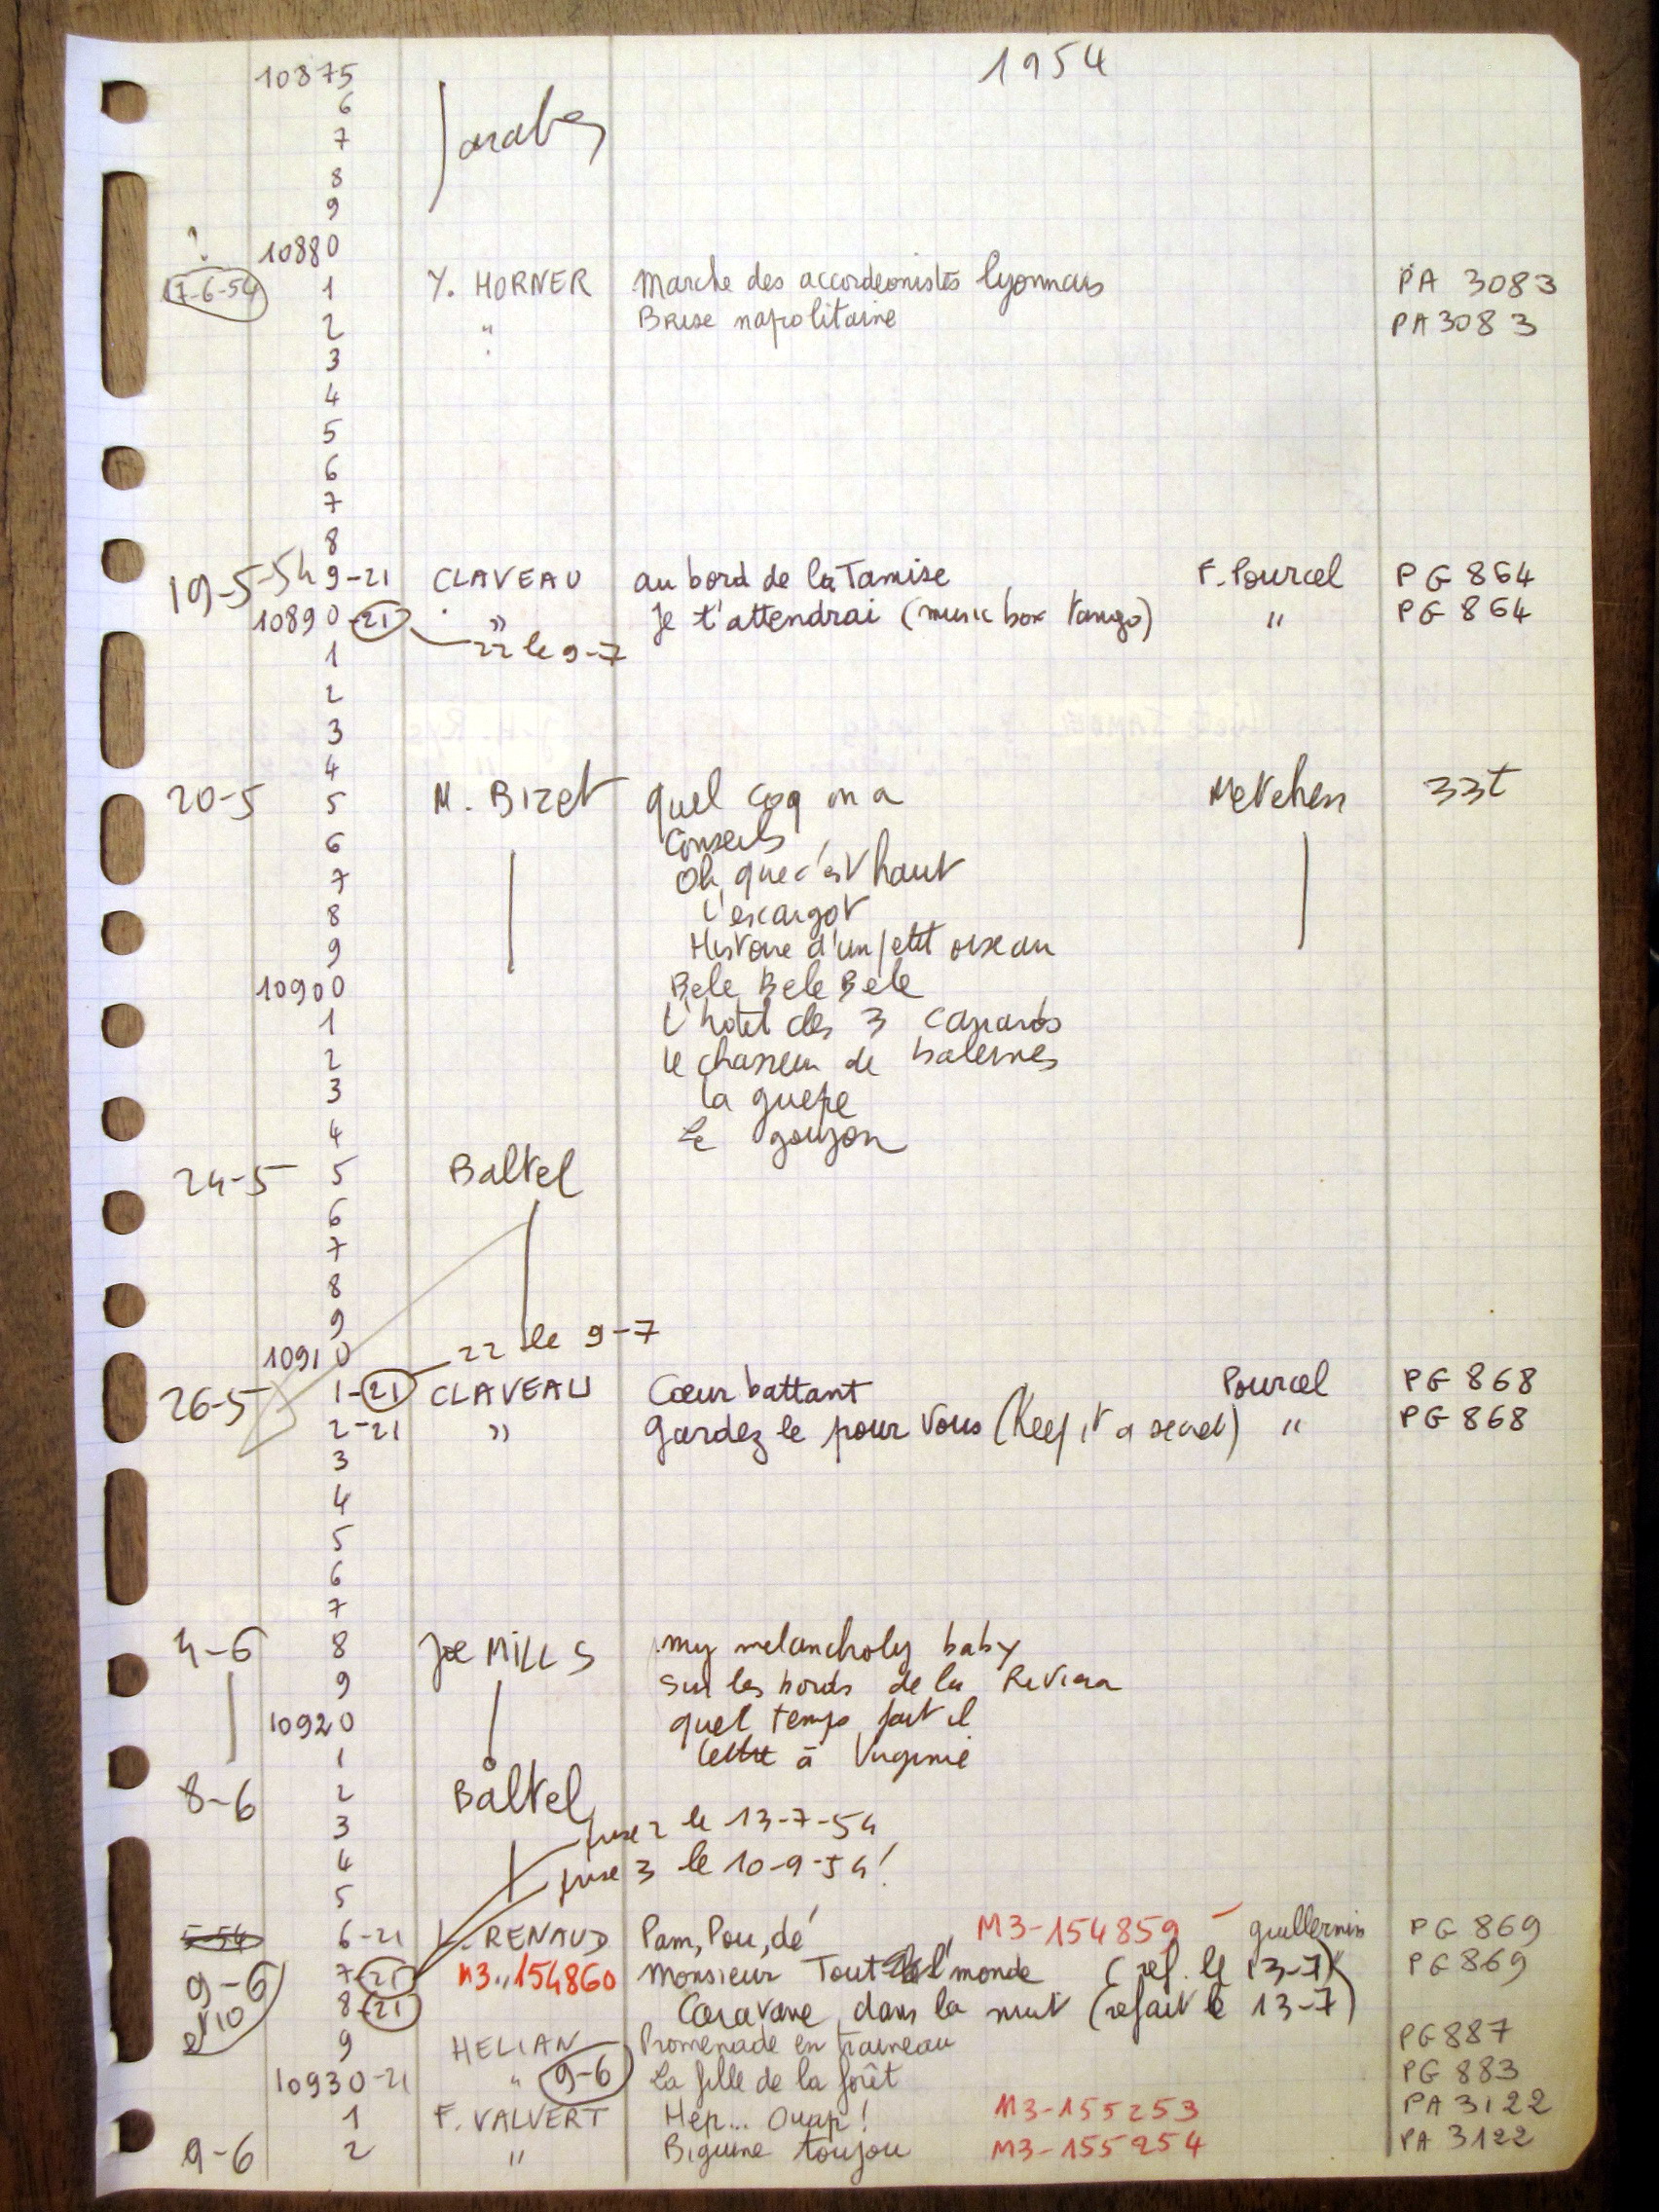 1954
10875
6
7 arabes
8
9
?
10880
17-6-54 1 Y. HORNER Marche des accordeonistes lyonnais PA 3083
2 " Brise napolitaine PA 3083
3
4
5
6
7
8
19-5-54 9-21 CLAVEAU au bord de la Tamise F. Pourcel PG 864
10890-21 " Je t'attendrai (music box tango) " PG 864
22 le 9-7
1
2
3
4
20-5 5 M. Bizet Quel coq on a Metehen 33t
6 Conseils
7 Oh, que c'est haut
8 L'escargot
9 Histoire d'un petit oiseau
10900 Bele Bele Bele
1 L'hotel des 3 canards
2 Le chasseur de baleines
3 La guepe
4 Le goujon
24-5 5 Baltel
6
7
8
9
22 le 9-7
10910
26-5 1-21 CLAVEAU Cœur battant Pourcel PG 868
2-21 " Gardez le pour vous (Keep it a secret) " PG 868
3
4
5
6
7
4-6 8 Joe MILLS my melancholy baby
9 Sur les bords de la Riviera
10920 quel temps fait il
1 Lettre à Virginie
8-6 2 Baltel
3 prise 2 le 13-7-54
4 prise 3 le 10-9-54!
5
5-54 6-21 L. RENAUD Pam, Pou, dé M3-154859 - guillermin PG 869
9-6 7-21 M3-154860 Monsieur Tout l'monde (ref. le 13-7) PG 869
et 10 8-21 Caravane dans la nuit (refait le 13-7)
9 HELIAN Promenade en traineau PG 887
10930-21 " 9-6 La fille de la forêt PG 883
1 F. VALVERT Hep... Ouap! M3-155253 PA 3122
9-6 2 " Biguine toujou M3-155254 PA 3122